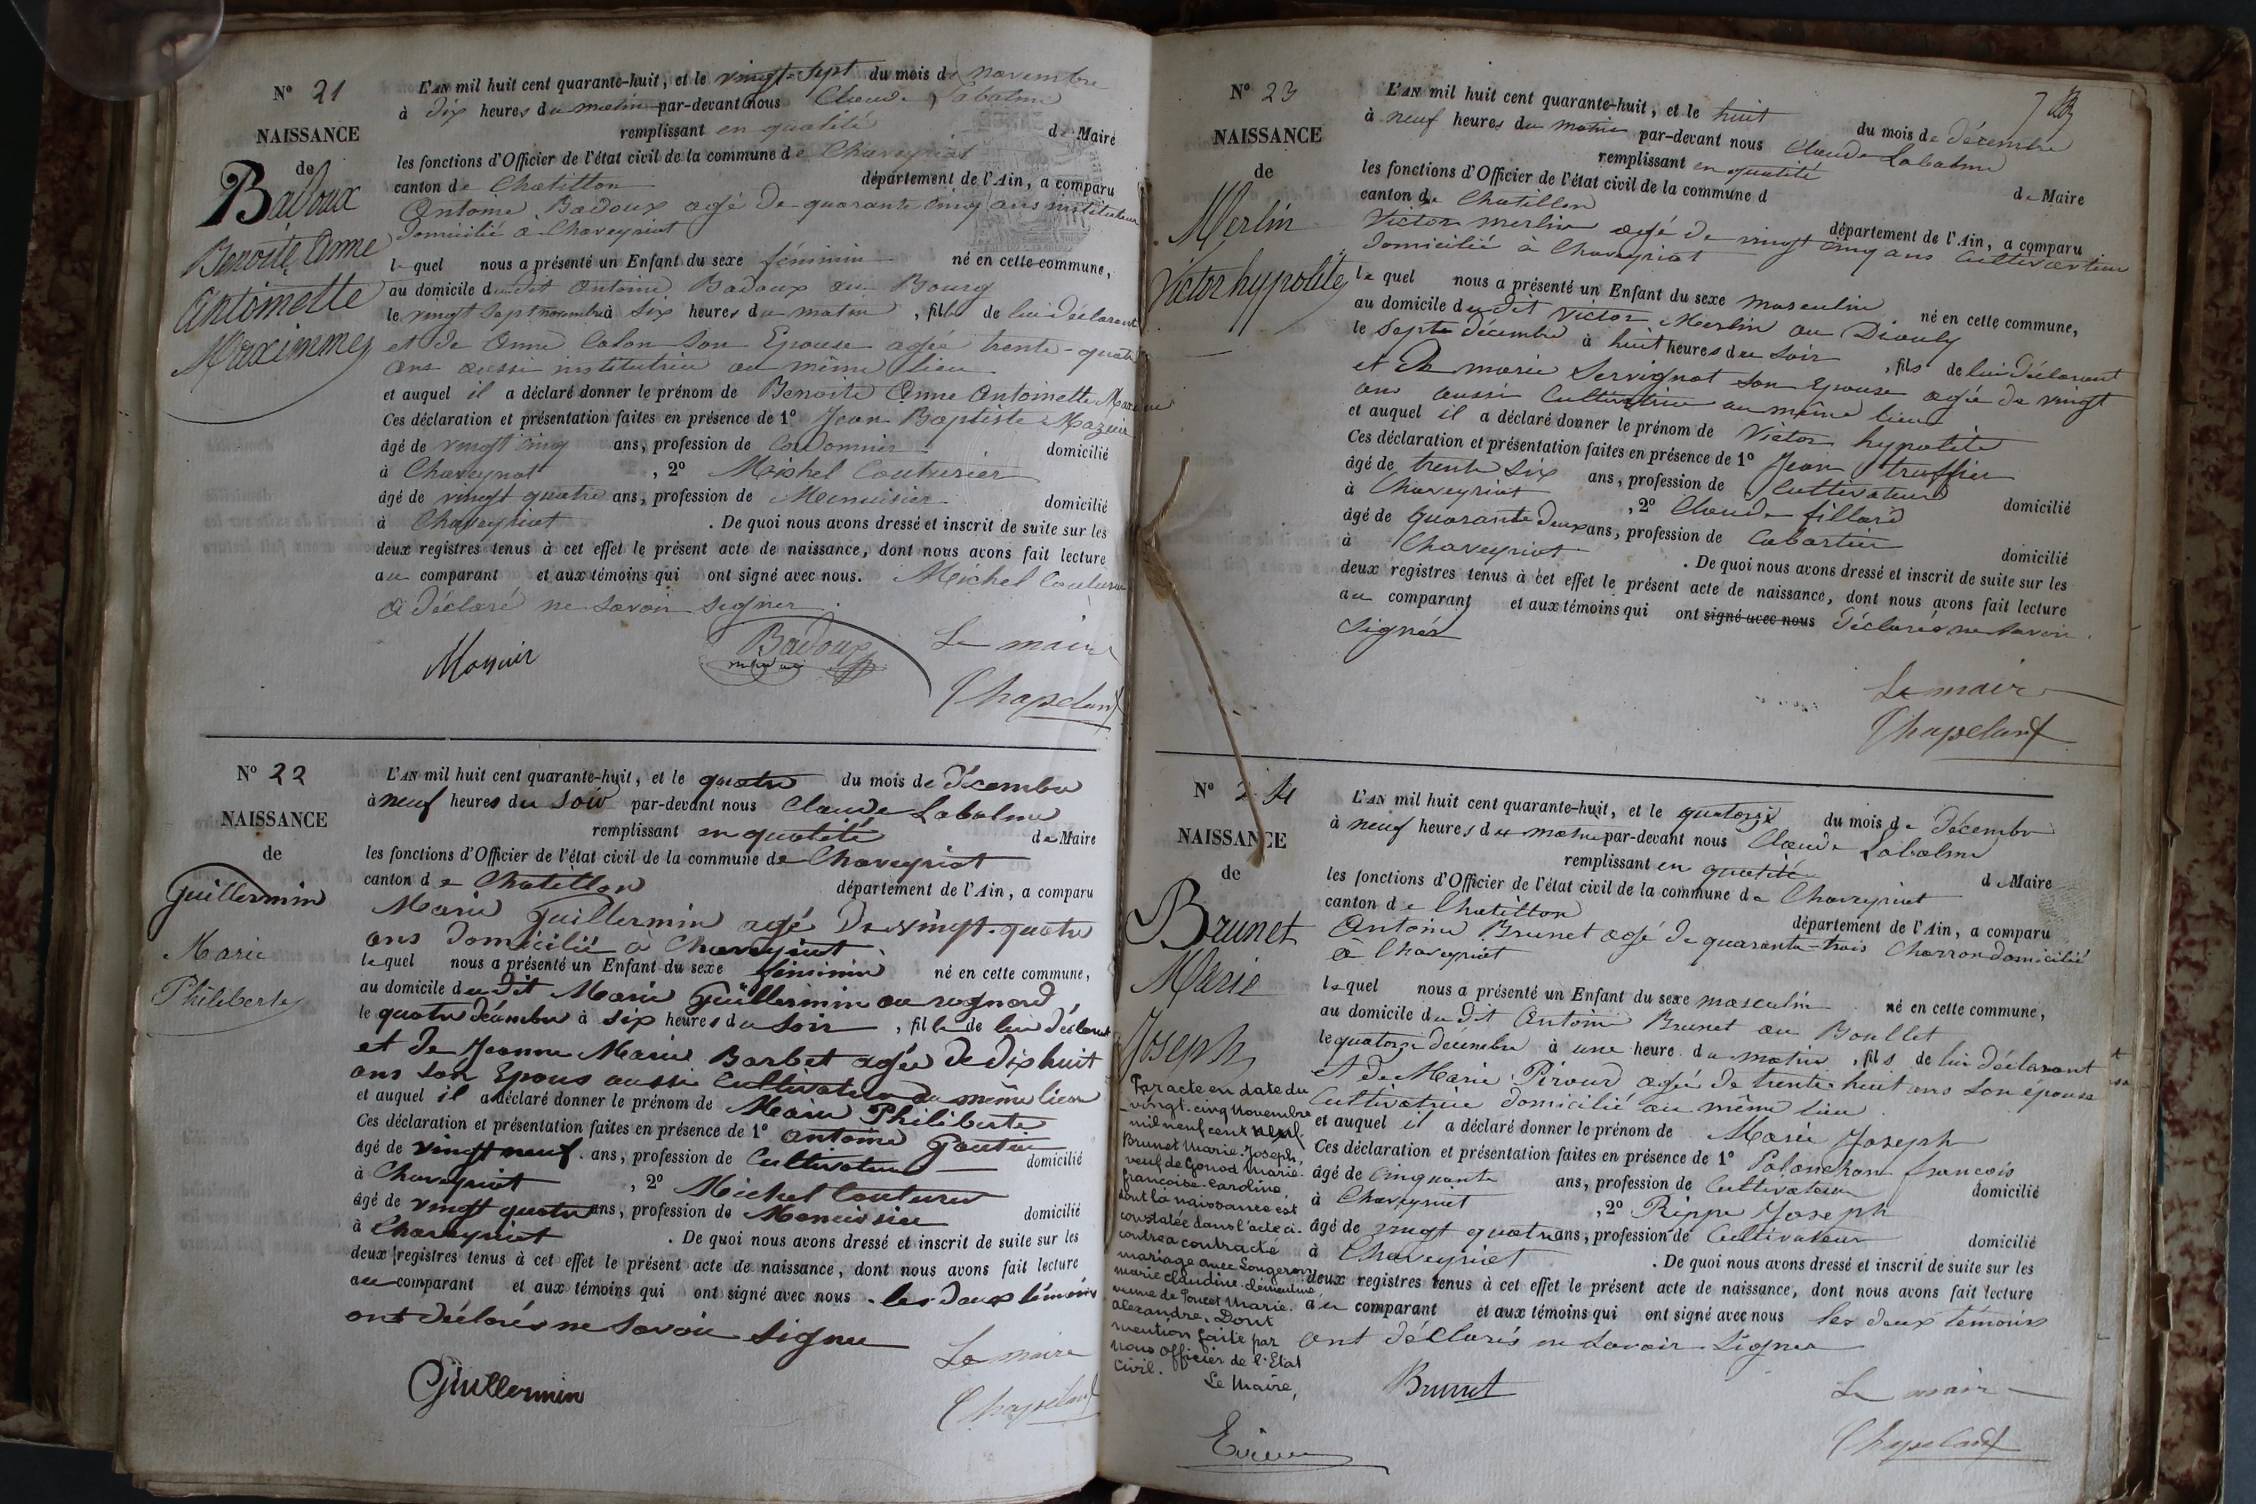 N° 21
NAISSANCE
de
Badoux
Benoite Anne
Antoinette
Maximme
L'AN mil huit cent quarante-huit, et le vingt-sept du mois de novembre
à dix heures du matin par-devant nous Claude Labalme
remplissant en qualité de Maire
les fonctions d'Officier de l'état civil de la commune de Chaveyriat
canton de Chatillon département de l'Ain, a comparu
Antoine Badoux agé de quarante cinq ans instituteur
domicilié a Chaveyriat
lequel nous a présenté un Enfant du sexe féminin né en cette commune,
au domicile dudit Antoine Badoux au Bourg
le vingt sept novembre à six heures du matin, fille de lui déclarant
et de Anne Colon son Epouse agée trente-quatre
ans aussi institutrice au même lieu
et auquel il a déclaré donner le prénom de Benoite Anne Antoinette
Ces déclaration et présentation faites en présence de 1° Jean Baptiste
âgé de vingt cinq ans, profession de Cordonnier domicilié
à Chaveyriat, 2° Michel Couturier
âgé de vingt quatre ans, profession de Menuisier domicilié
à Chaveyriat. De quoi nous avons dressé et inscrit de suite sur les
deux registres tenus à cet effet le présent acte de naissance, dont nous avons fait lecture
au comparant et aux témoins qui ont signé avec nous. Michel Couturier
a déclaré ne savoir signer.
Badoux Le maire
Chapeland
N° 22
NAISSANCE
de
Guillermin
Marie
Philiberte
L'AN mil huit cent quarante-huit, et le quatre du mois de décembre
à neuf heures du soir par-devant nous Claude Labalme
remplissant en qualité de Maire
les fonctions d'Officier de l'état civil de la commune de Chaveyriat
canton de Chatillon département de l'Ain, a comparu
Marie Guillermin agé de vingt-quatre
ans domicilié a Chaveyriat
lequel nous a présenté un Enfant du sexe féminin né en cette commune,
au domicile dudit Marie Guillermin au rognard
le quatre décembre à six heures du soir, fille de lui déclarant
et de Jeanne Marie Barbet agée de dix huit
ans son Epouse aussi Cultivateur au même lieu
et auquel il a déclaré donner le prénom de Marie Philiberte
Ces déclaration et présentation faites en présence de 1° Antoine
âgé de vingt neuf ans, profession de Cultivateur domicilié
à Chaveyriat, 2° Michel Couturier
âgé de vingt quatre ans, profession de Menuisier domicilié
à Chaveyriat. De quoi nous avons dressé et inscrit de suite sur les
deux registres tenus à cet effet le présent acte de naissance, dont nous avons fait lecture
au comparant et aux témoins qui ont signé avec nous. les deux témoins
ont déclarés ne savoir signer
Le maire
Guillermin Chapeland
N° 23
NAISSANCE
de
Merlin
Victor hypolite
L'AN mil huit cent quarante-huit, et le huit du mois de décembre
à neuf heures du matin par-devant nous Claude Labalme
remplissant en qualité de Maire
les fonctions d'Officier de l'état civil de la commune d
canton de Chatillon département de l'Ain, a comparu
Victor merlin agé de vingt cinq ans Cultivateur
domicilié à Chaveyriat
lequel nous a présenté un Enfant du sexe masculin né en cette commune,
au domicile dudit Victor Merlin au Diouly
le Sept décembre à huit heures du soir, fils de lui déclarant
et de marie Servignat son Epouse agée de vingt
ans aussi Cultivatrice au même lieu
et auquel il a déclaré donner le prénom de Victor hypolite
Ces déclaration et présentation faites en présence de 1° Jean truffier
âgé de trente six ans, profession de Cultivateur domicilié
à Chaveyriat, 2° Claude fillard
âgé de quarante deux ans, profession de Cabartier domicilié
à Chaveyriat. De quoi nous avons dressé et inscrit de suite sur les
deux registres tenus à cet effet le présent acte de naissance, dont nous avons fait lecture
au comparant et aux témoins qui ont signé avec nous déclarés ne savoir
signer
Le maire
Chapeland
N° 24
NAISSANCE
de
Brunet
Marie
Joseph
Par acte en date du
vingt-cinq Novembre
mil neuf cent neuf
Brunet Marie-Joseph,
veuf de Gonod Marie-
françoise-Caroline,
dont la naissance est
constatée dans l'acte ci-
contre a contracté
mariage avec Longeron
marie claudine clémentine
veuve de Poncet Marie-
alexandre. Dont
mention faite par
nous officier de l'Etat
civil.
Le Maire,
L'AN mil huit cent quarante-huit, et le quatorze du mois de décembre
à neuf heures du matin par-devant nous Claude Labalme
remplissant en qualité de Maire
les fonctions d'Officier de l'état civil de la commune de Chaveyriat
canton de Chatillon département de l'Ain, a comparu
Antoine Brunet agé de quarante-trois Charron domicilié
à Chaveyriat
lequel nous a présenté un Enfant du sexe masculin né en cette commune,
au domicile dudit Antoine Brunet au Boullet
le quatorze décembre à une heure du matin, fils de lui déclarant
et de Marie Piroud agée de trente huit ans son épouse
Cultivatrice domicilié au même lieu
et auquel il a déclaré donner le prénom de Marie Joseph
Ces déclaration et présentation faites en présence de 1° Palanchon françois
âgé de cinquante ans, profession de Cultivateur domicilié
à Chaveyriat, 2° Rippe Joseph
âgé de vingt quatre ans, profession de Cultivateur domicilié
à Chaveyriat. De quoi nous avons dressé et inscrit de suite sur les
deux registres tenus à cet effet le présent acte de naissance, dont nous avons fait lecture
au comparant et aux témoins qui ont signé avec nous les deux témoins
ont déclarés ne savoir signer
Brunet Le maire
Chapeland